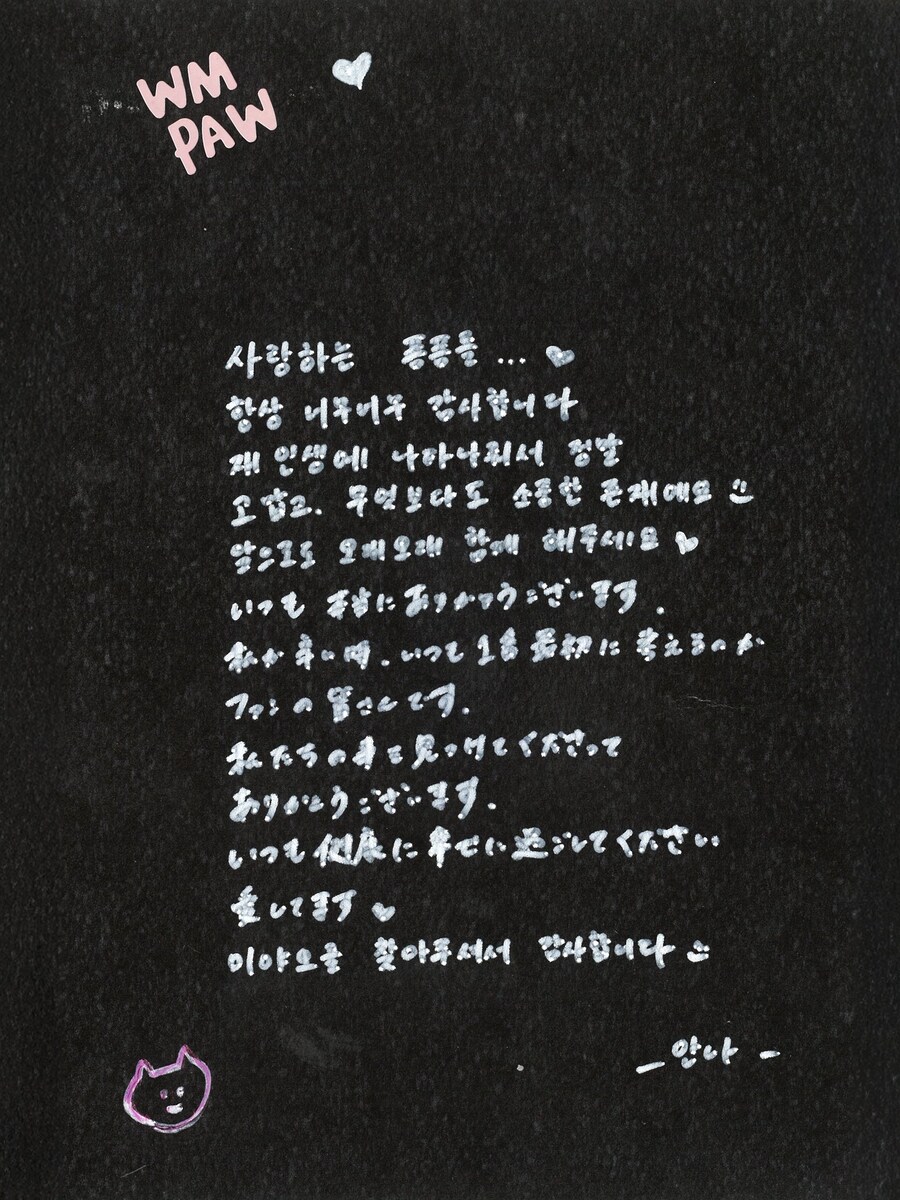 WM
PAW
사랑하는 퐁퐁들 ...
항상 너무너무 감사합니다
제 인생에 나타나줘서 정말
고맙고. 무엇보다도 소중한 존재에요
앞으로도 오래오래 함께 해주세요
いつも 本当に ありがとうございます.
私が 辛い時. いつも 1番 最初に 考えるのが
ファンの 皆さんです.
私たちの事を見つけてくださって
ありがとうございます.
いつも 健康に 幸せに 過ごしてください
愛してます
미야오를 찾아주셔서 감사합니다
- 안나 -